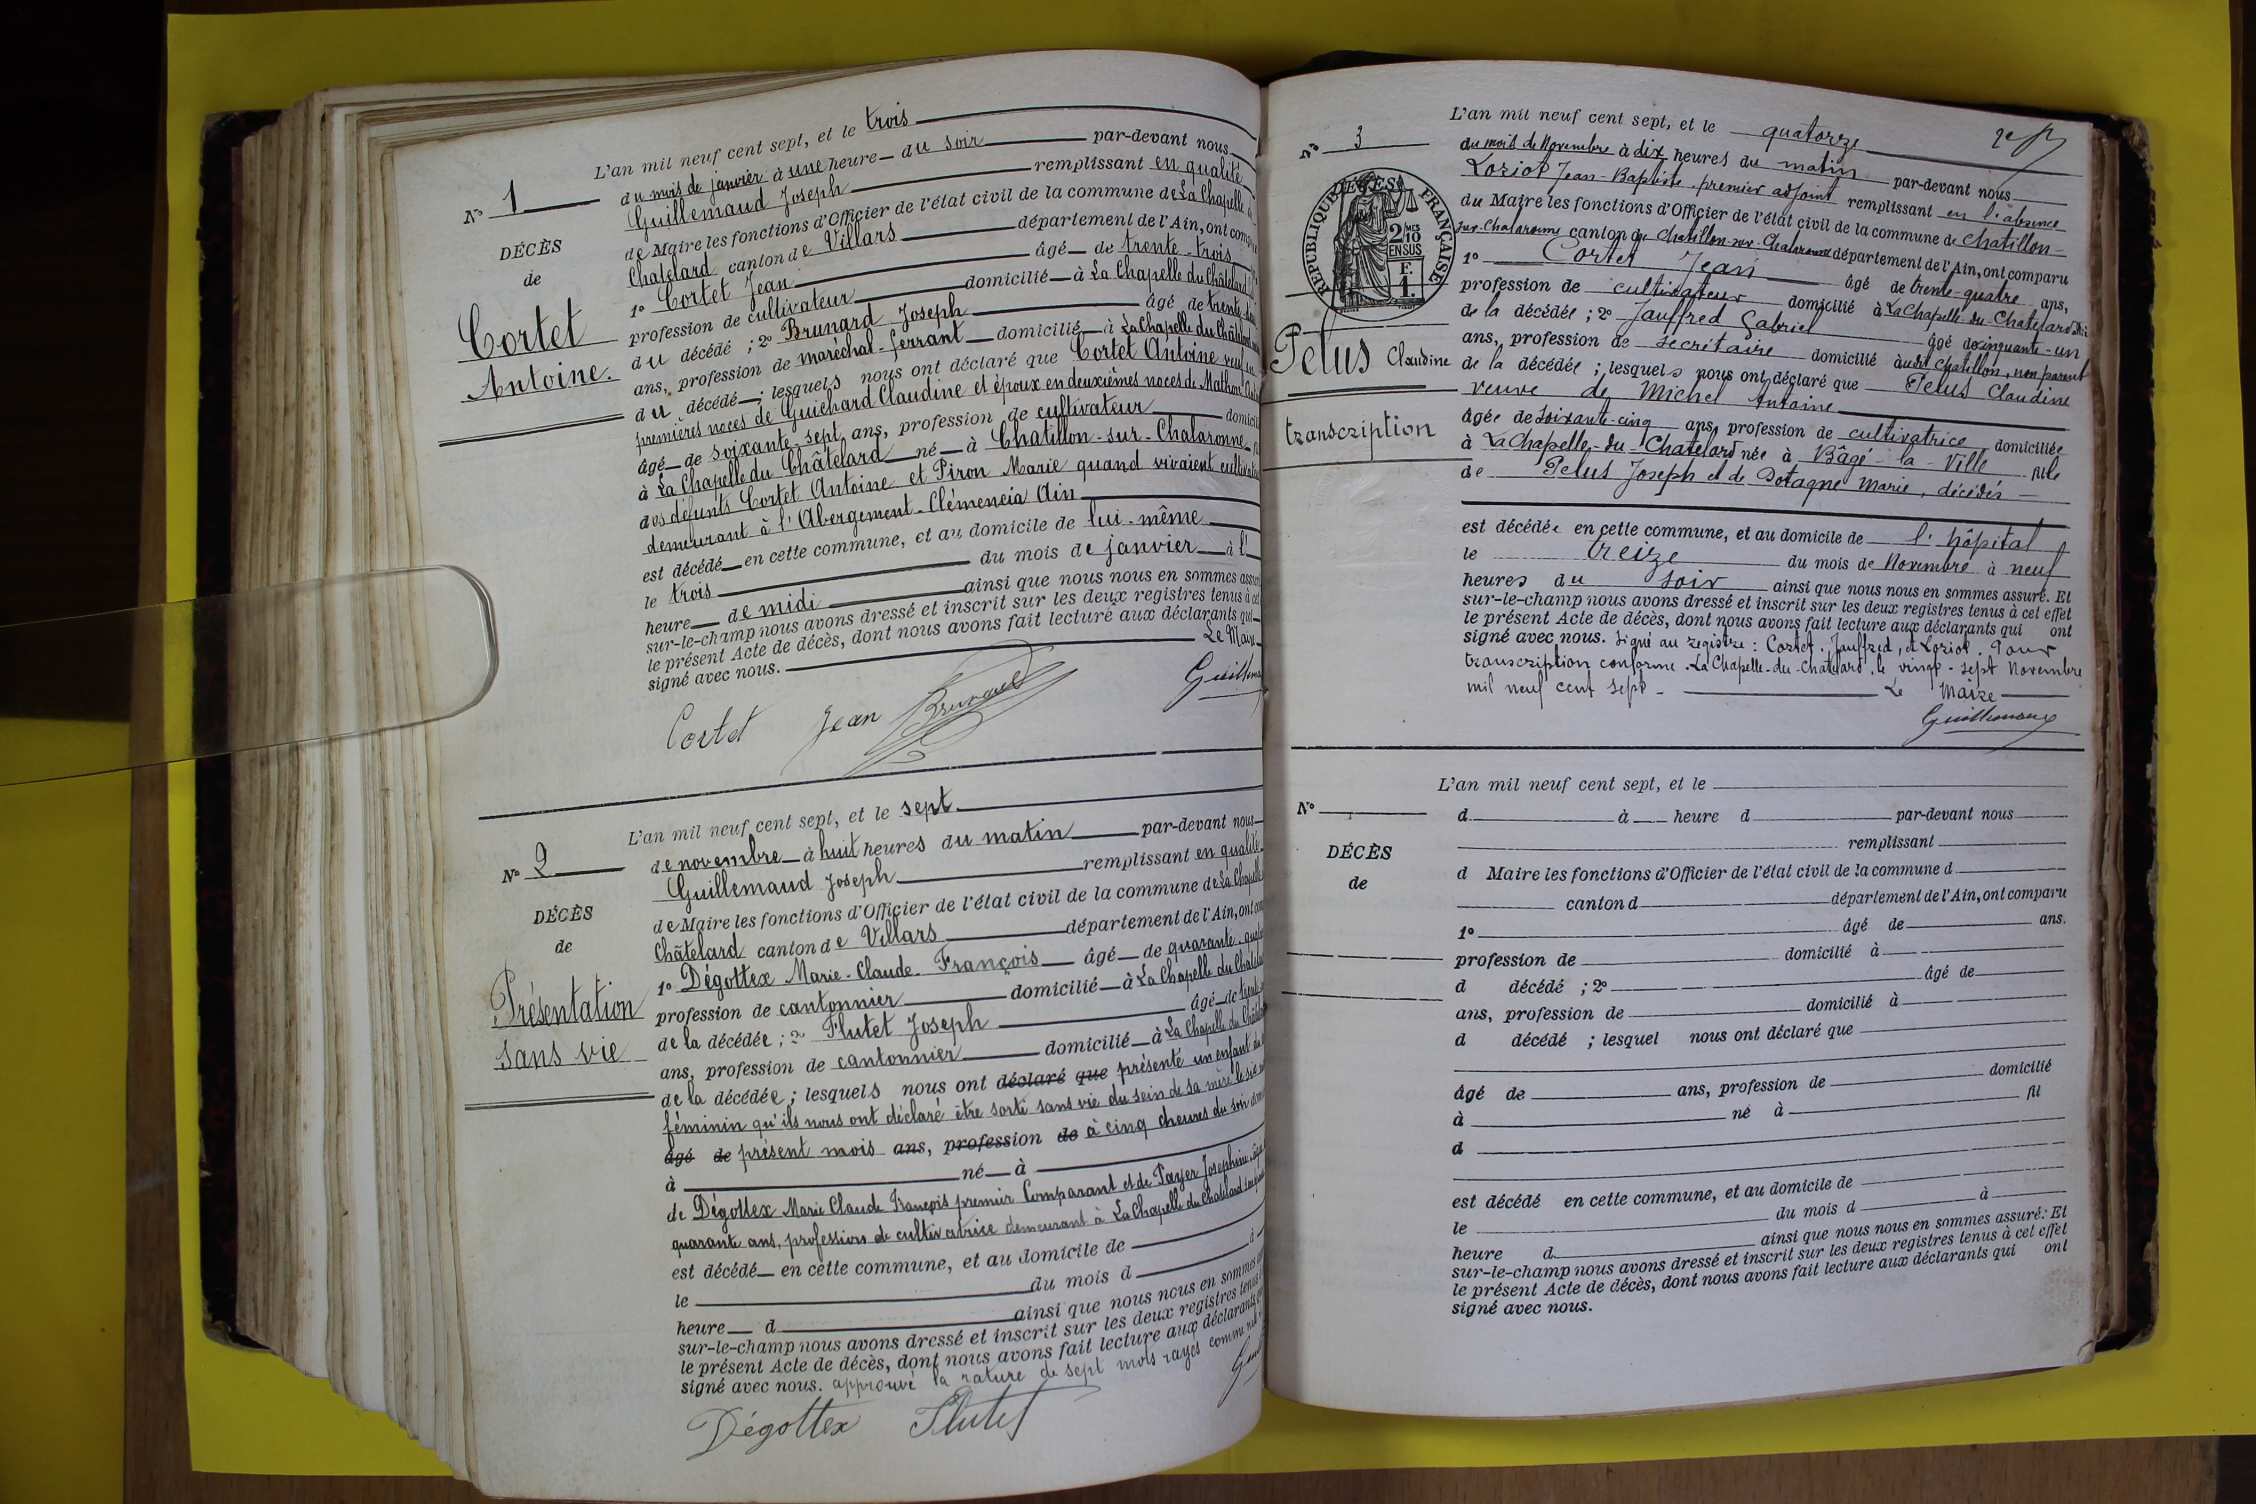 L'an mil neuf cent sept, et le trois
N° 1
du mois de janvier à une heure du soir par-devant nous
Guillemaud Joseph remplissant en qualité
de Maire les fonctions d'Officier de l'état civil de la commune de La Chapelle
Chatelard canton de Villars département de l'Ain, ont
DÉCÈS
de
Cortet
Antoine.
1° Cortet Jean âgé de trente-trois
profession de cultivateur domicilié à La Chapelle du Châtelard
du décédé ; 2° Brunard Joseph âgé de trente
ans, profession de maréchal-ferrant domicilié à La Chapelle du Châtelard
du décédé ; lesquels nous ont déclaré que Cortet Antoine veuf
premières noces de Guichard Claudine et époux en deuxièmes noces de Mathon
âgé de soixante-sept ans, profession de cultivateur
à La Chapelle du Châtelard né à Chatillon-sur-Chalaronne
des défunts Cortet Antoine et Piron Marie quand vivaient
demeurant à l'Abergement-Clémencia Ain
est décédé en cette commune, et au domicile de lui-même
le trois du mois de janvier à l'
heure de midi ainsi que nous nous en sommes
sur-le-champ nous avons dressé et inscrit sur les deux registres tenus à cet
le présent Acte de décès, dont nous avons fait lecture aux déclarants qui
signé avec nous. Le Maire
Cortet Jean Brunard
L'an mil neuf cent sept, et le sept
N° 2
de novembre à huit heures du matin par-devant nous
Guillemaud Joseph remplissant en qualité
de Maire les fonctions d'Officier de l'état civil de la commune de La Chapelle
Châtelard canton de Villars département de l'Ain, ont
DÉCÈS
de
Présentation
sans vie
1° Dégottex Marie-Claude-François âgé de quarante
profession de cantonnier domicilié à La Chapelle du Chatelard
de la décédée ; 2° Flutet Joseph âgé de
ans, profession de cantonnier domicilié à La Chapelle du Châtelard
de la décédée ; lesquels nous ont déclaré que présenté un enfant du
féminin qu'ils nous ont déclaré être sorti sans vie du sein de sa mère le
âgé de présent mois ans, profession de à cinq heures du soir
à né à
de Dégottex Marie Claude François premier Comparant et de Payer Josephine
quarante ans, profession de cultivatrice demeurant à La Chapelle du Chatelard
est décédé en cette commune, et au domicile de
le du mois d à
heure d ainsi que nous nous en sommes
sur-le-champ nous avons dressé et inscrit sur les deux registres tenus
le présent Acte de décès, dont nous avons fait lecture aux déclarants
signé avec nous. approuvé la rature de sept mots rayés comme
Dégottex Flutet
L'an mil neuf cent sept, et le quatorze
N° 3
du mois de Novembre à dix heures du matin par-devant nous
Loriol Jean-Baptiste, premier adjoint remplissant en l'absence
du Maire les fonctions d'Officier de l'état civil de la commune de Chatillon-
sur-Chalaronne canton de Chatillon-sur-Chalaronne département de l'Ain, ont comparu
RÉPUBLIQUE FRANÇAISE
2/10 EN SUS
F. 1.
Petus Claudine
transcription
1° Cortet Jean âgé de trente-quatre ans,
profession de cultivateur domicilié à La Chapelle-du-Chatelard
de la décédée ; 2° Jauffred Gabriel âgé de cinquante-un
ans, profession de secrétaire domicilié à Chatillon, non parent
de la décédée ; lesquels nous ont déclaré que Petus Claudine
veuve de Michel Antoine
âgée de soixante-cinq ans, profession de cultivatrice domiciliée
à La Chapelle-du-Chatelard née à Bâgé-la-Ville fille
de Petus Joseph et de Dotagne Marie, décédés
est décédée en cette commune, et au domicile de l'hôpital
le treize du mois de Novembre à neuf
heures du soir ainsi que nous nous en sommes assuré. Et
sur-le-champ nous avons dressé et inscrit sur les deux registres tenus à cet effet
le présent Acte de décès, dont nous avons fait lecture aux déclarants qui ont
signé avec nous. signé au registre : Cortet, Jauffred, et Loriol. Pour
transcription conforme. La Chapelle-du-Chatelard, le vingt-sept Novembre
mil neuf cent sept - Le Maire
Guillemaud
L'an mil neuf cent sept, et le
N°
d à heure d par-devant nous
remplissant
d Maire les fonctions d'Officier de l'état civil de la commune d
canton d département de l'Ain, ont comparu
DÉCÈS
de
1° âgé de ans.
profession de domicilié à
d décédé ; 2° âgé de
ans, profession de domicilié à
d décédé ; lesquel nous ont déclaré que
âgé de ans, profession de domicilié
à né à fil
d
est décédé en cette commune, et au domicile de
le du mois d à
heure d ainsi que nous nous en sommes assuré. Et
sur-le-champ nous avons dressé et inscrit sur les deux registres tenus à cet effet
le présent Acte de décès, dont nous avons fait lecture aux déclarants qui ont
signé avec nous.